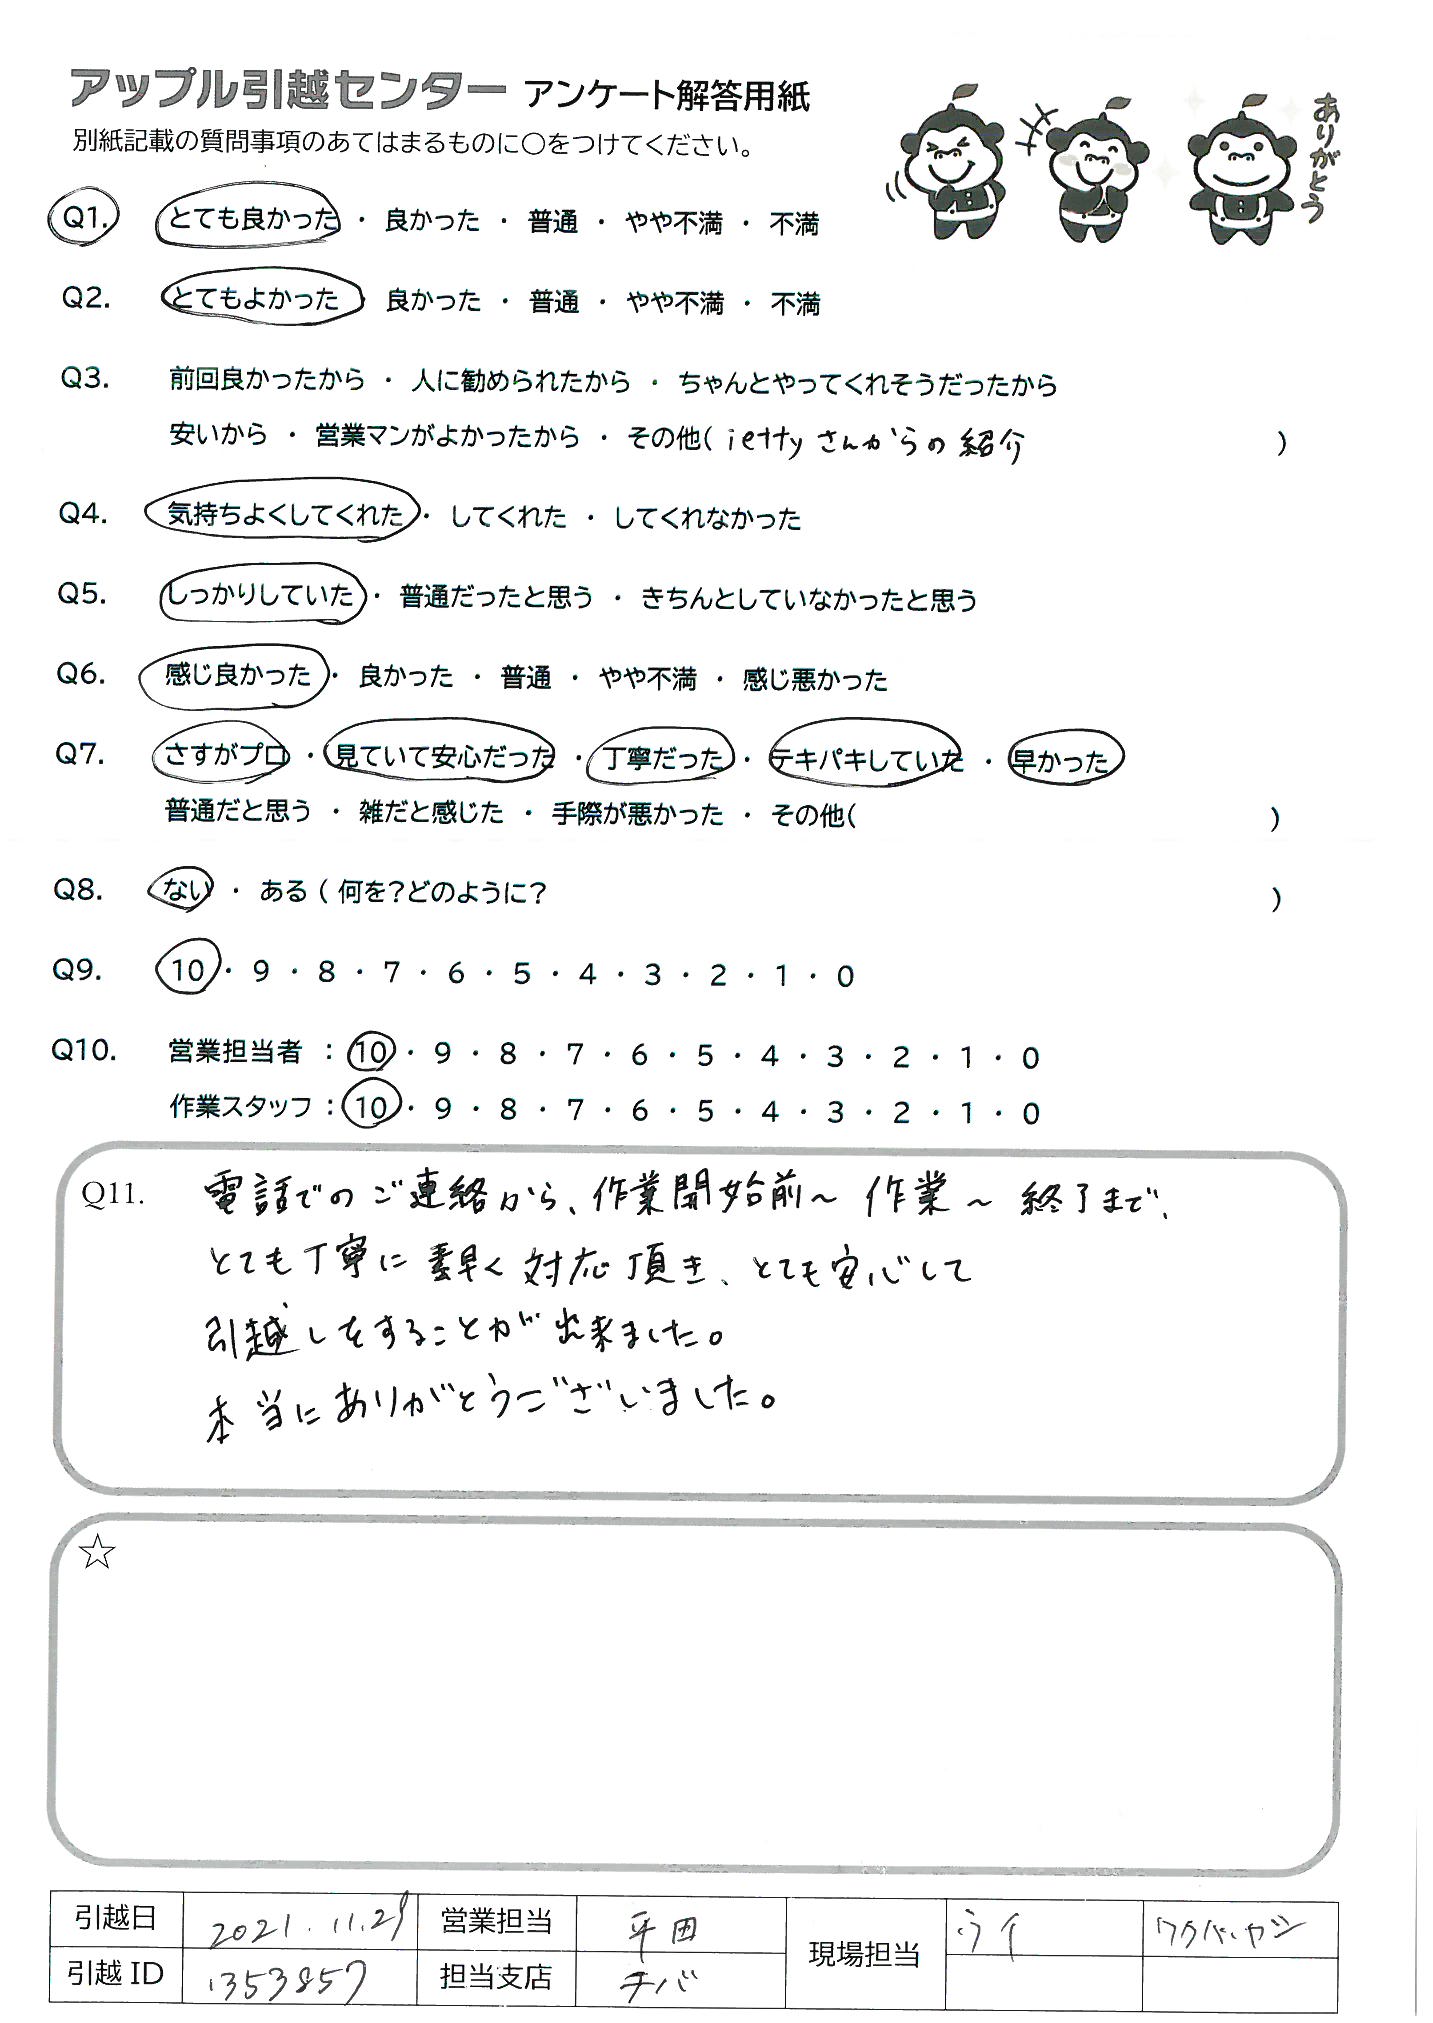 アップル引越センター アンケート解答用紙
別紙記載の質問事項のあてはまるものに○をつけてください。
ありがとう
Q1. とても良かった ・ 良かった ・ 普通 ・ やや不満 ・ 不満
Q2. とてもよかった ・ 良かった ・ 普通 ・ やや不満 ・ 不満
Q3. 前回良かったから ・ 人に勧められたから ・ ちゃんとやってくれそうだったから
安いから ・ 営業マンがよかったから ・ その他( iettyさんからの紹介 )
Q4. 気持ちよくしてくれた ・ してくれた ・ してくれなかった
Q5. しっかりしていた ・ 普通だったと思う ・ きちんとしていなかったと思う
Q6. 感じ良かった ・ 良かった ・ 普通 ・ やや不満 ・ 感じ悪かった
Q7. さすがプロ ・ 見ていて安心だった ・ 丁寧だった ・ テキパキしていた ・ 早かった
普通だと思う ・ 雑だと感じた ・ 手際が悪かった ・ その他( )
Q8. ない ・ ある ( 何を?どのように? )
Q9. 10 ・ 9 ・ 8 ・ 7 ・ 6 ・ 5 ・ 4 ・ 3 ・ 2 ・ 1 ・ 0
Q10. 営業担当者 : 10 ・ 9 ・ 8 ・ 7 ・ 6 ・ 5 ・ 4 ・ 3 ・ 2 ・ 1 ・ 0
作業スタッフ : 10 ・ 9 ・ 8 ・ 7 ・ 6 ・ 5 ・ 4 ・ 3 ・ 2 ・ 1 ・ 0
Q11. 電話でのご連絡から、作業開始前～作業～終了まで、
とても丁寧に素早く対応頂き、とても安心して
引越しをすることが出来ました。
本当にありがとうございました。
☆
引越日 2021.11.29 営業担当 平田 現場担当
引越ID 1353857 担当支店 チバ